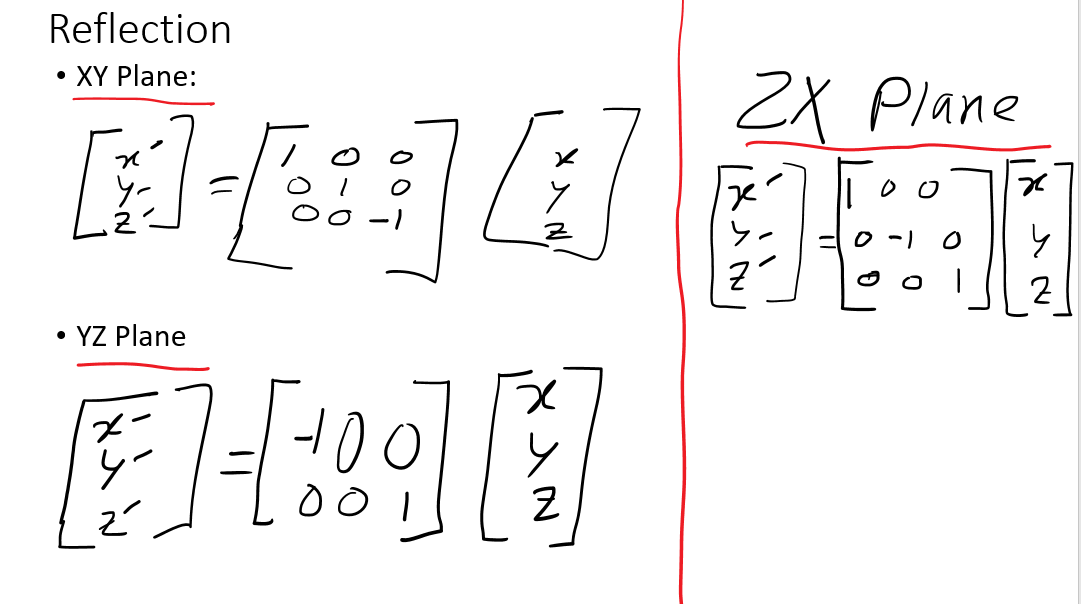 Reflection
• XY Plane:
[x′ y′ z′] = [1 0 0
0 1 0
0 0 -1] [x y z]
• YZ Plane
[x′ y′ z′] = [-1 0 0
0 0 1] [x y z]
ZX Plane
[x′ y′ z′] = [1 0 0
0 -1 0
0 0 1] [x y z]